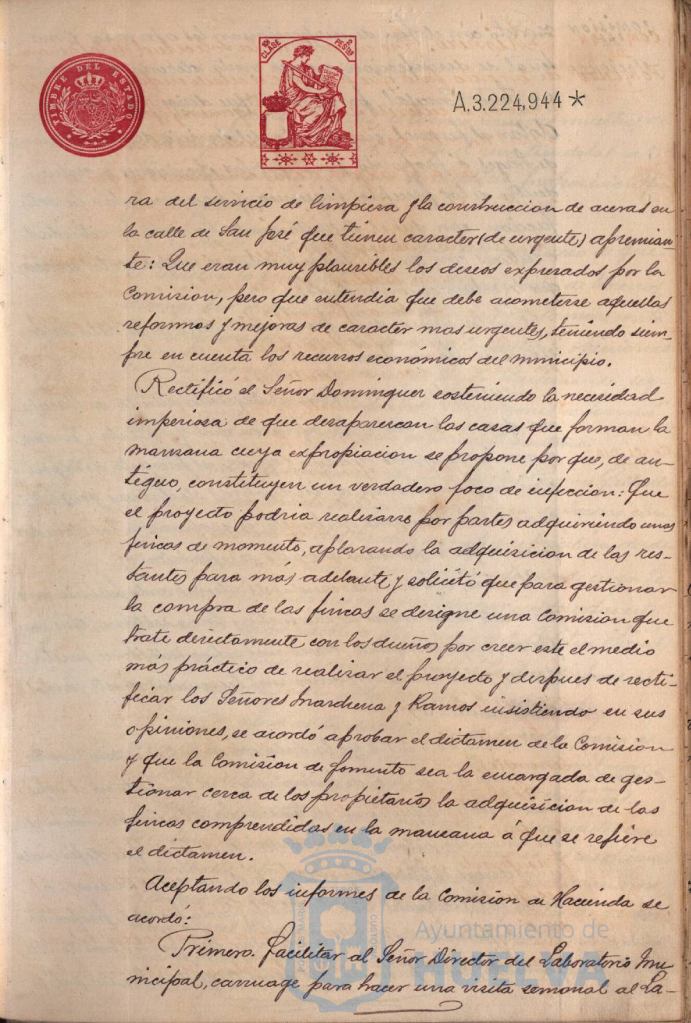 TIMBRE DEL ESTADO
CLASE 10ª 2 PESTAS
A.3.224,944*
ra del servicio de limpieza y la construccion de aceras en
la calle de San José que tienen caracter (de urgente) apremian-
te: Que eran muy plausibles los deseos expresados por la
Comision, pero que entendia que debe acometerse aquellas
reformas y mejoras de caracter mas urgentes, teniendo siem-
pre en cuenta los recursos económicos del municipio.
Rectificó el Señor Dominguez sosteniendo la necesidad
imperiosa de que desaparezcan las casas que forman la
manzana cuya expropiacion se propone por que, de an-
tiguo, constituyen un verdadero foco de infeccion: Que
el proyecto podria realizarse por partes adquiriendo unas
fincas de momento, aplazando la adquisicion de las res-
tantes para más adelante y solicitó que para gestionar
la compra de las fincas se designe una Comision que
trate directamente con los dueños por creer este el medio
más práctico de realizar el proyecto y despues de recti-
ficar los Señores Marchena y Ramos insistiendo en sus
opiniones, se acordó aprobar el dictamen de la Comision
y que la Comision de fomento sea la encargada de ges-
tionar cerca de los propietarios la adquisicion de las
fincas comprendidas en la manzana á que se refiere
el dictamen.
Aceptando los informes de la Comision de Hacienda se
acordó:
Primero. Facilitar al Señor Director del Laboratorio Mu-
nicipal, carruage para hacer una visita semanal al La-
Ayuntamiento de
HUELVA